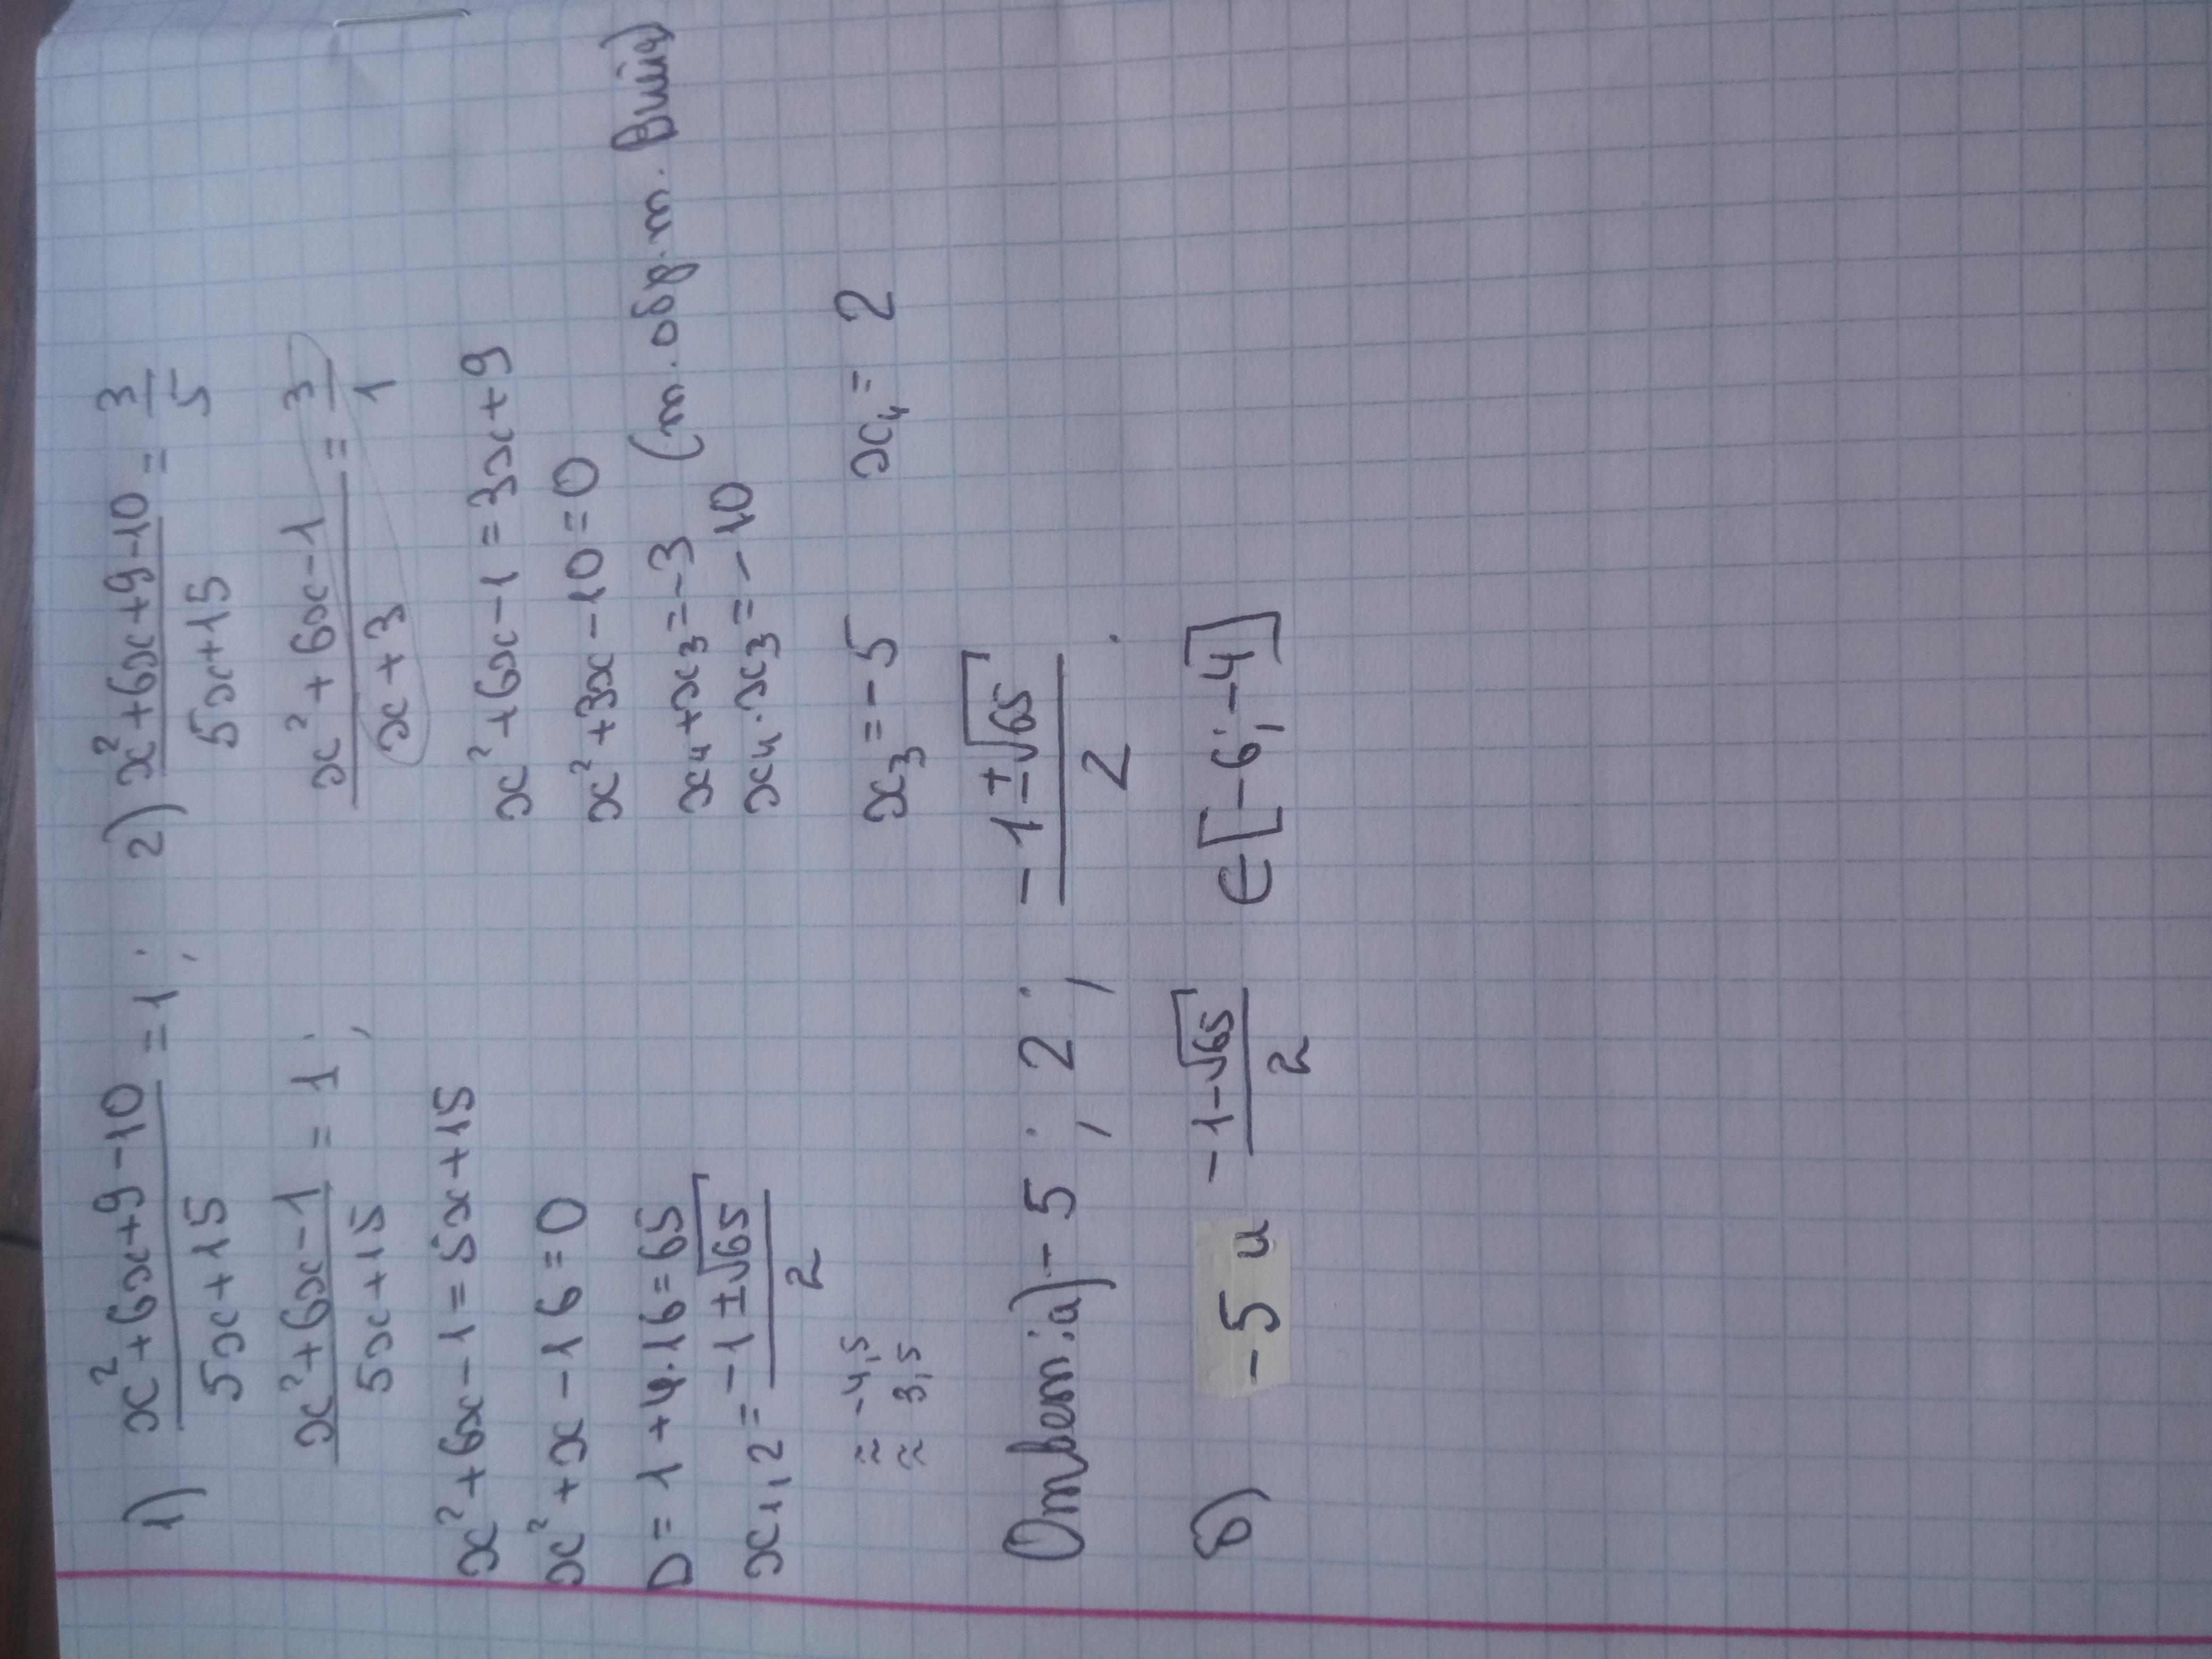 1) (x²+6x+9-10)/(5x+15) = 1;
(x²+6x-1)/(5x+15) = 1;
x²+6x-1=5x+15
x²+x-16=0
D=1+4·16=65
x₁,₂=(-1±√65)/2
≈ -4,5
≈ 3,5
2) (x²+6x+9-10)/(5x+15) = 3/5
(x²+6x-1)/(x+3) = 3/1
x²+6x-1=3x+9
x²+3x-10=0
x₄+x₃=-3 (т. обр. т. Виета)
x₄·x₃=-10
x₃=-5 x₄=2
Ответ: а) -5; 2; (-1±√65)/2.
б) -5 и (-1-√65)/2 ∈[-6;-4]